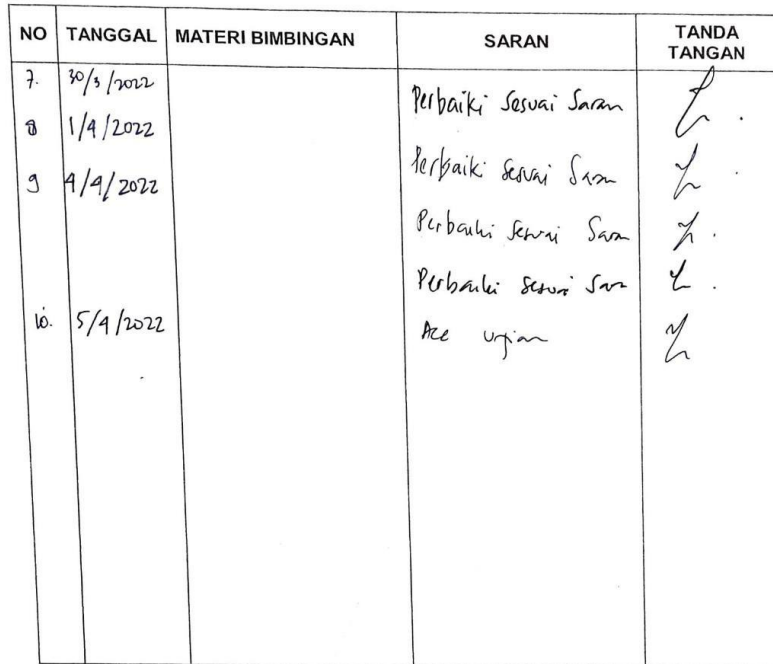 NO TANGGAL MATERI BIMBINGAN SARAN TANDA TANGAN
7. 30/3/2022 Perbaiki Sesuai Saran
8 1/4/2022 Perbaiki Sesuai Saran
9 4/4/2022
Perbaiki Sesuai Saran
Perbaiki Sesuai Saran
10. 5/4/2022 Acc ujian